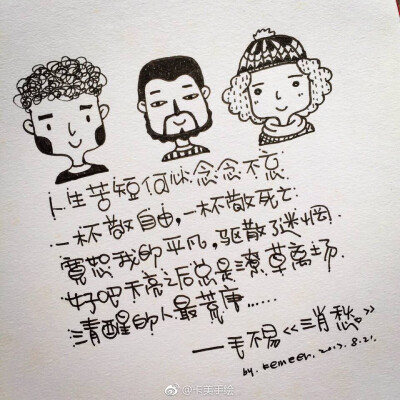 人生苦短何必念念不忘
一杯敬自由，一杯敬死亡
宽恕我的平凡，驱散了迷惘.
好吧天亮之后总是潦草离场
清醒的人最荒唐......
—毛不易《消愁。》
by. kemeer. 2017. 8.21.